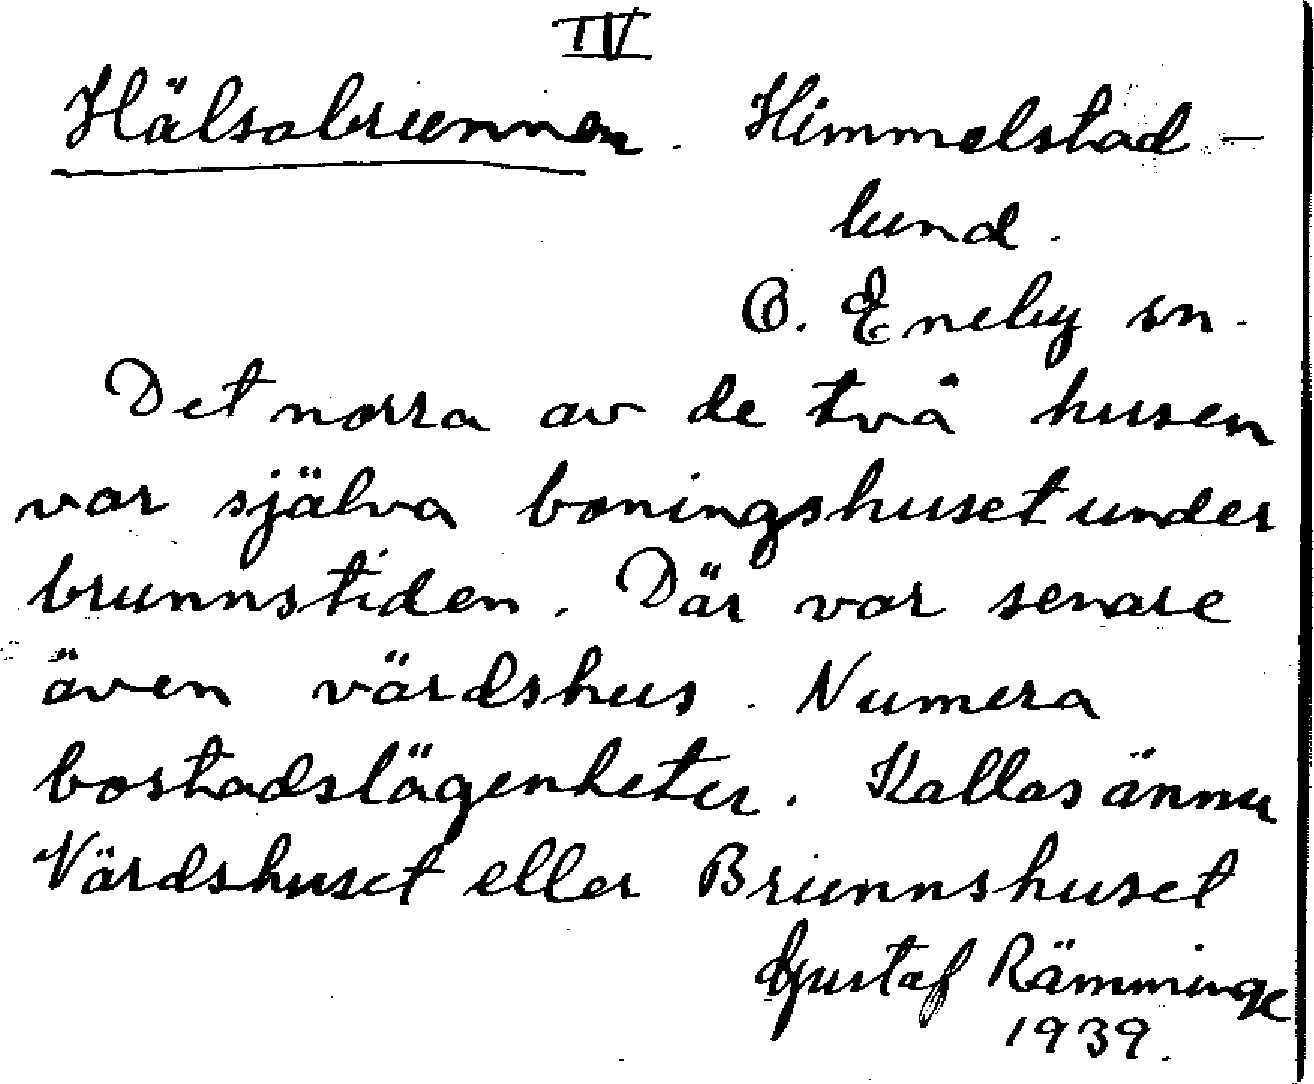 IV
Hälsobrunnen. Himmelstad-
lund.
Ö. Eneby sn.
Det norra av de två husen
var själva boningshuset under
brunnstiden. Där var senare
även värdshus. Numera
bostadslägenheter. Kallas ännu
Värdshuset eller Brunnshuset
Gustaf Rämminge
1939.